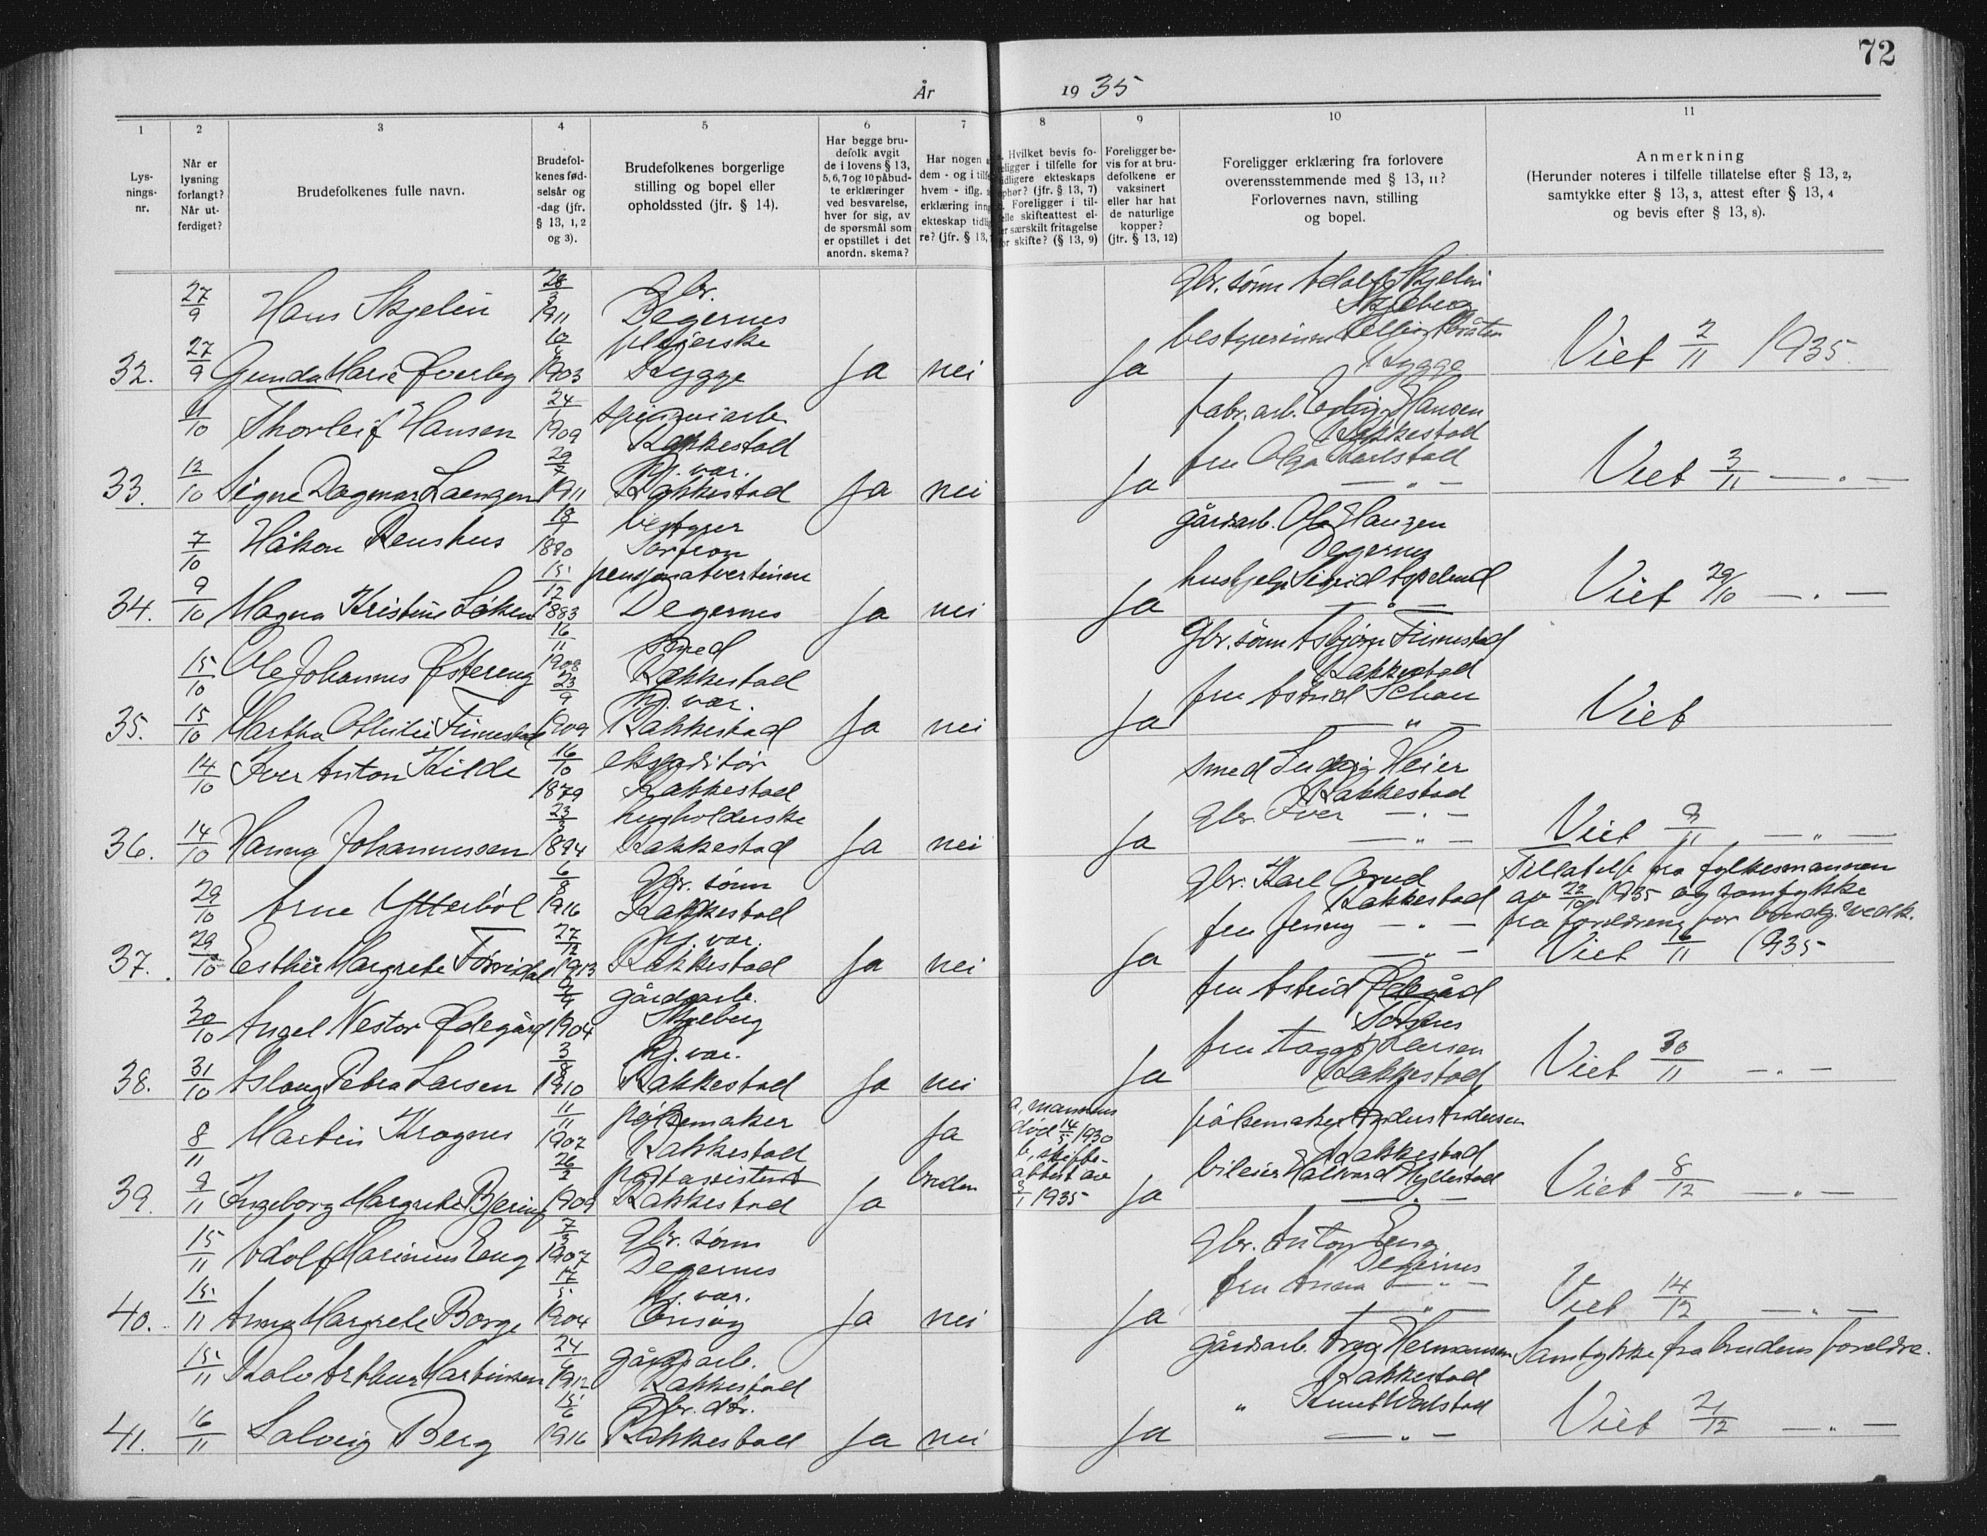 72
År 1935
1 2 3 4 5 6 7 8 9 10 11
Lysningsnr.
Når er lysning forlangt? Når utferdiget?
Brudefolkenes fulle navn.
Brudefolkenes fødselsår og -dag (jfr. § 13, 1, 2 og 3).
Brudefolkenes borgerlige stilling og bopel eller opholdssted (jfr. § 14).
Har begge brudefolk avgit de i lovens § 13, 5, 6, 7 og 10 påbudte erklæringer ved besvarelse, hver for sig, av de spørsmål som er opstillet i det anordn. skema?
Har nogen
dem - og i
hvem - iflg.
erklæring
ekteskap
re? (jfr. § 13,
Hvilket bevis fo-
i tilfelle for
ekteskaps
(jfr. § 13, 7)
Foreligger i til-
skifteattest el-
særskilt fritagelse
skifte? (§ 13, 9)
Foreligger bevis for at brudefolkene er vaksinert eller har hat de naturlige kopper? (jfr. § 13, 12)
Foreligger erklæring fra forlovere
overensstemmende med § 13, 11?
Forlovernes navn, stilling
og bopel.
Anmerkning
(Herunder noteres i tilfelle tillatelse efter § 13, 2,
samtykke efter § 13, 3, attest efter § 13, 4
og bevis efter § 13, 8).
27/9 Hans Skjelin 1911 gbr. Degernes gbr. sønn Adolf Skjelin Skjeberg
32. 27/9 Gunda Marie Øverby 1903 pleierske Rygge Ja nei Ja bestyrerinne Rygge Viet 2/11 1935
11/10 Thorleif Hansen 24/ 1909 Rakkestad fabr.arb. Erling Hansen Rakkestad
33. 12/10 Signe Dagmar Laengen 29/7 1911 hj. var. Rakkestad Ja nei Ja fru Olga Karlstad — " — Viet 3/11 — " —
7/10 Håkon Renshus 1890 bestyrer gårdsarb. Ole Hansen Degernes
34. 9/10 Magna Kristine Løken 15/12 1883 pensjonatvertinne Degernes Ja nei Ja hushjelp Sigrid Aspelund — " — Viet 29/10 — " —
15/10 Ole Johannes Østereng 16/11 1908 smed Rakkestad gbr. sønn Asbjørn Finnestad Rakkestad
35. 15/10 Martha Othilie Finnestad 23/9 1909 hj. var. Rakkestad Ja nei Ja fru Astrid — " — Viet
14/10 Iver Anton Kilde 16/10 1879 ekspeditør Rakkestad smed Ludvig Heier Rakkestad
36. 14/10 Hanna Johannessen 1894 husholderske Rakkestad Ja nei Ja gbr. Iver — " — Viet 9/11 — " —
29/10 Arne Ytterbøl 6/8 1916 gbr. sønn Rakkestad gbr. Karl Rakkestad Tillatelse fra fylkesmannen av 22/10 1935 og samtykke fra foreldrene
37. 29/10 Esther Margrete 27/12 1913 hj. var. Rakkestad Ja nei Ja fru Jenny — " — Viet 16/11 1935
30/10 Angel Nestor Ødegård 1904 gårdsarb. Skjeberg fru Astrid Ødegård
38. 31/10 Aslaug Petra Larsen 3/8 1910 hj. var. Rakkestad Ja nei Ja fru Aagot Larsen Rakkestad Viet 30/11 — " —
8/11 Martin Kragnes 11/11 1907 pølsemaker Rakkestad Ja a, mannens død 14/5 1930 pølsemaker Anders Andersen Rakkestad
39. 9/11 Ingeborg Margrete Bjering 26/2 1909 postassistent Rakkestad Ja bruden b, skifteattest av 1935 Ja bileier Halvard Hyllestad — " — Viet 8/12 — " —
15/11 Adolf Marinius Eng 1907 gbr. sønn Degernes gbr. Anton Eng Degernes
40. 15/11 Anna Margrete Borge 17/5 1904 hj. var. Onsøy Ja nei Ja fru Anna — " — Viet 14/12 — " —
15/11 Rolv Arthur Martinsen 24/6 1912 gårdsarb. Rakkestad gårdsarb. Hermansen Rakkestad Samtykke fra brudens foreldre.
41. 16/11 Solveig Berg 15/6 1916 gbr. dtr. Rakkestad Ja nei Ja " Knut — " — Viet 21/12 — " —